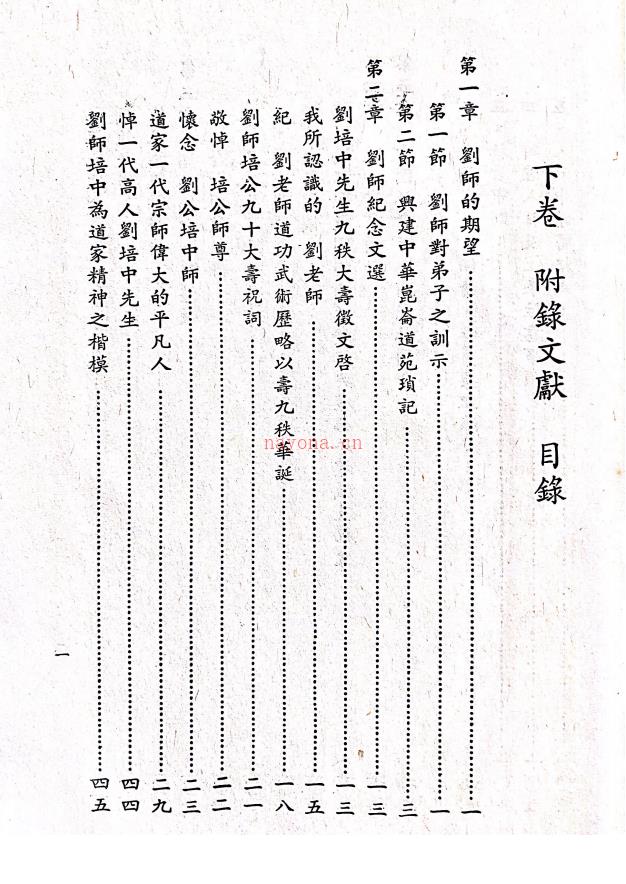 下卷 附錄文獻 目錄
第一章 劉師的期望……一
第一節 劉師對弟子之訓示……一
第二節 興建中華崑崙道苑瑣記……三
第二章 劉師紀念文選……一三
劉培中先生九秩大壽徵文啓……一三
我所認識的 劉老師……一五
紀 劉老師道功武術歷略以壽九秩華誕……一八
劉師培公九十大壽祝詞……二一
敬悼 培公師尊……二二
懷念 劉公培中師……二三
道家一代宗師偉大的平凡人……二九
悼一代高人劉培中先生……四四
劉師培中為道家精神之楷模……四五
一
nayona.cn